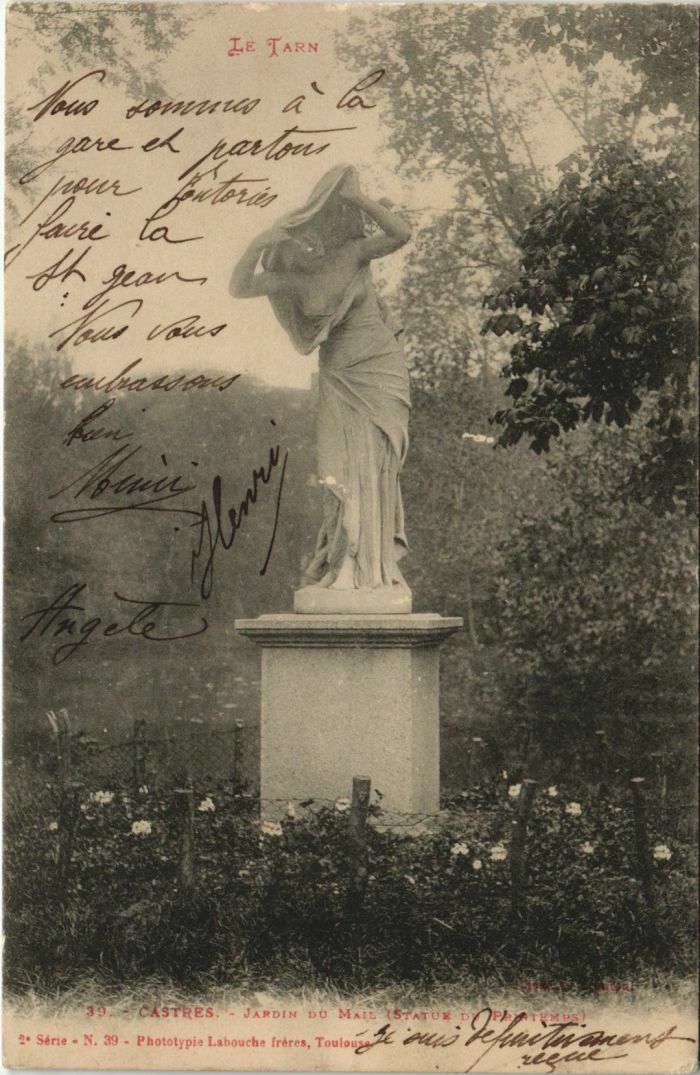 LE TARN
Vous sommes à la
gare et partons
pour Pontories
faire la
St jean
Vous vous
embrassons
bien
Mimi
Henri
Angele
39. - CASTRES. - JARDIN DU MAIL (STATUE DU PRINTEMPS)
2e Série - N. 39 - Phototypie Labouche frères, Toulouse
je suis definitivement
reçue